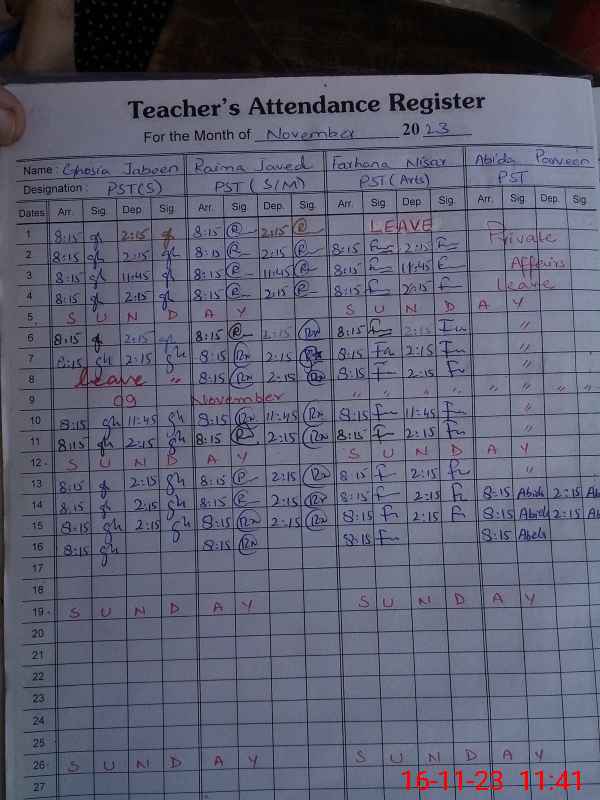 Teacher's Attendance Register
For the Month of November 2023
Name : Ghosia Jabeen Raima Javed Farhana Nisar Abida Parveen
Designation : PST(S) PST (S/M) PST (Arts) PST
Dates Arr. Sig. Dep. Sig. Arr. Sig. Dep. Sig. Arr. Sig. Dep. Sig. Arr. Sig. Dep. Sig.
1 8:15 gh 2:15 gh 8:15 R 2:15 R LEAVE Private
2 8:15 gh 2:15 gh 8:15 R 2:15 R 8:15 F 2:15 F
3 8:15 gh 11:45 gh 8:15 R 11:45 R 8:15 F 11:45 F Affairs
4 8:15 gh 2:15 gh 8:15 R 2:15 R 8:15 F 2:15 F Leave
5 S U N D A Y S U N D A Y
6 8:15 g 2:15 gh 8:15 R 2:15 Rn 8:15 F 2:15 Fn "
7 8:15 gh 2:15 gh 8:15 Rn 2:15 Rn 8:15 Fn 2:15 Fn "
8 Leave " 8:15 Rn 2:15 Rn 8:15 Fn 2:15 F "
9 09 November " " " " " " " "
10 8:15 gh 11:45 gh 8:15 Rn 11:45 Rn 8:15 Fn 11:45 Fn "
11 8:15 gh 2:15 gh 8:15 R 2:15 Rn 8:15 F 2:15 F "
12 - S U N D A Y S U N D A Y
13 8:15 g 2:15 gh 8:15 R 2:15 Rn 8:15 F 2:15 Fn "
14 8:15 g 2:15 gh 8:15 R 2:15 Rn 8:15 F 2:15 Fn 8:15 Abida 2:15 Ab
15 8:15 gh 2:15 gh 8:15 Rn 2:15 Rn 8:15 F 2:15 F 8:15 Abida 2:15 Ab
16 8:15 gh 8:15 Rn 8:15 Fn 8:15 Abida
17
18
19 - S U N D A Y S U N D A Y
20
21
22
23
24
25
26 - S U N D A Y S U N D A Y
27
16-11-23 11:41